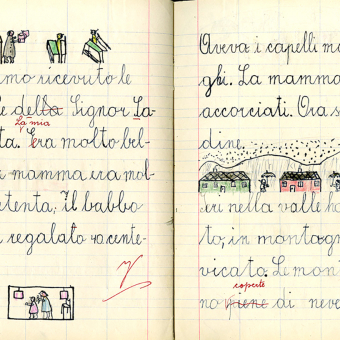 mo ricevuto le
e della Signor La-
La mia
ta. Era molto bel-
mamma era mol-
tenta, Il babbo
regalato 40 cente-
Aveva i capelli
ghi. La mamma
accorciati. Ora s
dine.
eri nella valle ha
to, in montagn
vicato. Le mont
coperte
no piene di neve